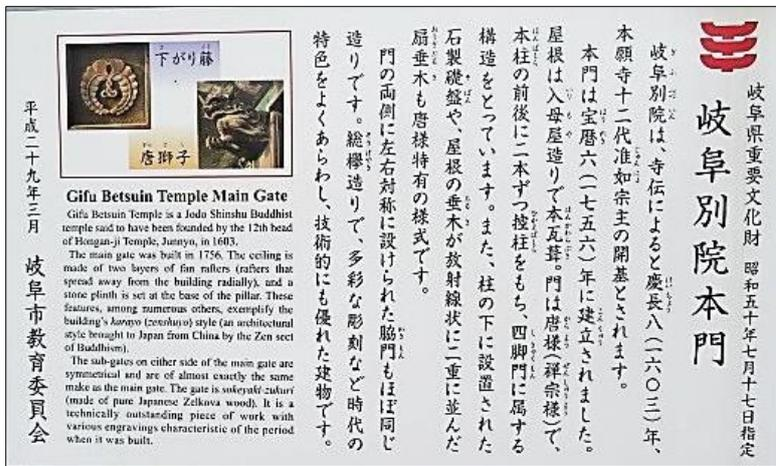 岐阜県重要文化財　昭和五十年七月十七日指定
岐阜別院本門
岐阜別院は、寺伝によると慶長八(一六〇三)年、
本願寺十二代准如宗主の開基とされます。
本門は宝暦六(一七五六)年に建立されました。
屋根は入母屋造りで本瓦葺。門は唐様(禅宗様)で、
本柱の前後に二本ずつ控柱をもち、四脚門に属する
構造をとっています。また、柱の下に設置された
石製礎盤や、屋根の垂木が放射線状に二重に並んだ
扇垂木も唐様特有の様式です。
門の両側に左右対称に設けられた脇門もほぼ同じ
造りです。総欅造りで、多彩な彫刻など時代の
特色をよくあらわし、技術的にも優れた建物です。
下がり藤
唐獅子
Gifu Betsuin Temple Main Gate
Gifu Betsuin Temple is a Jodo Shinshu Buddhist
temple said to have been founded by the 12th head
of Hongan-ji Temple, Junnyo, in 1603.
The main gate was built in 1756. The ceiling is
made of two layers of fan rafters (rafters that
spread away from the building radially), and a
stone plinth is set at the base of the pillar. These
features, among numerous others, exemplify the
building's karayo (zenshuyo) style (an architectural
style brought to Japan from China by the Zen sect
of Buddhism).
The sub-gates on either side of the main gate are
symmetrical and are of almost exactly the same
make as the main gate. The gate is sokeyaki-zukuri
(made of pure Japanese Zelkova wood). It is a
technically outstanding piece of work with
various engravings characteristic of the period
when it was built.
平成二十九年三月　岐阜市教育委員会